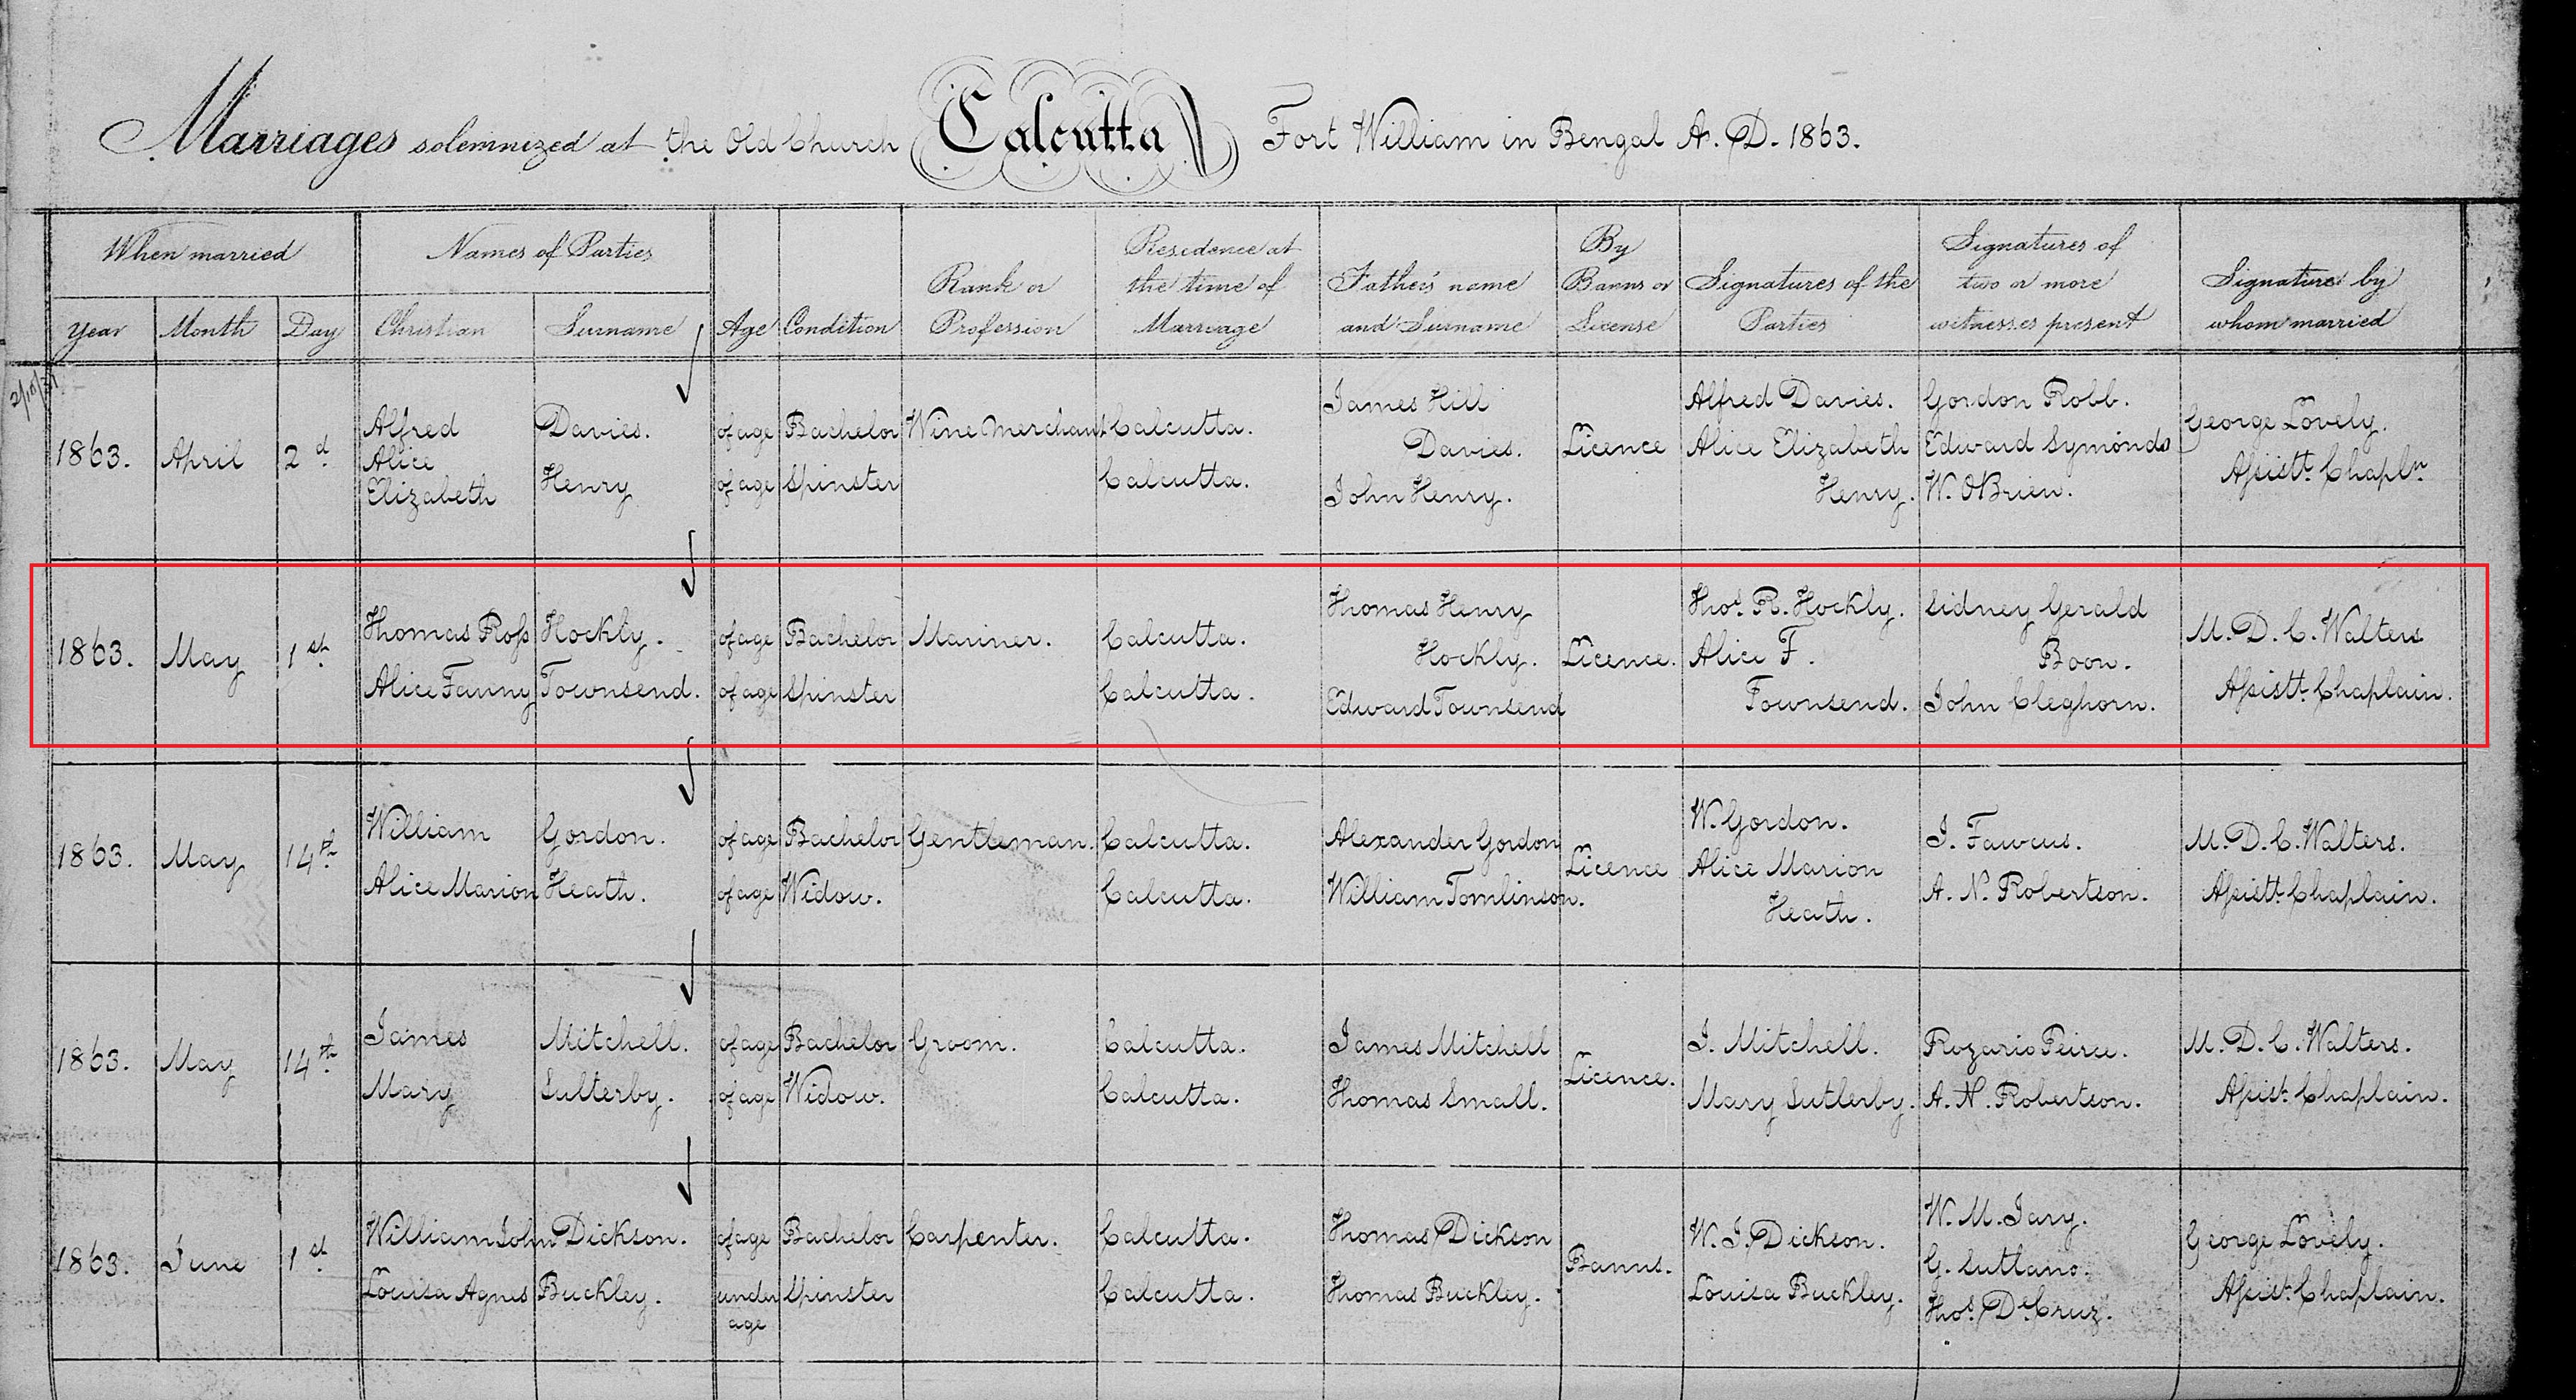 Marriages solemnized at the Old Church Calcutta Fort William in Bengal A. D. 1863.
When married
Names of Parties
Year
Month
Day
Christian
Surname
Age
Condition
Rank or
Profession
Residence at
the time of
Marriage
Father's name
and Surname
By
Banns or
License
Signatures of the
Parties
Signatures of
two or more
witnesses present
Signature by
whom married
1863.
April
2d.
Alfred
Alice
Elizabeth
Davies.
Henry
of age
of age
Bachelor
Spinster
Wine Merchant
Calcutta.
Calcutta.
James Hill
Davies.
John Henry.
Licence
Alfred Davies.
Alice Elizabeth
Henry.
Gordon Robb.
Edward Symonds
W. OBrien.
George Lovely.
Assistt. Chapln.
1863.
May
1st.
Thomas Ross
Alice Fanny
Hockly.
Townsend.
of age
of age
Bachelor
Spinster
Mariner.
Calcutta.
Calcutta.
Thomas Henry
Hockly.
Edward Townsend
Licence.
Thos. R. Hockly.
Alice F.
Townsend.
Sidney Gerald
Boon.
John Cleghorn.
M. D. C. Walters
Assistt. Chaplain.
1863.
May
14th.
William
Alice Marion
Gordon.
Heath.
of age
of age
Bachelor
Widow.
Gentleman.
Calcutta.
Calcutta.
Alexander Gordon
William Tomlinson.
Licence
W. Gordon.
Alice Marion
Heath.
J. Fawcus.
A. N. Robertson.
M. D. C. Walters.
Assistt. Chaplain.
1863.
May
14th.
James
Mary
Mitchell.
Sutterby.
of age
of age
Bachelor
Widow.
Groom.
Calcutta.
Calcutta.
James Mitchell
Thomas Small.
Licence.
J. Mitchell.
Mary Sutterby.
Rozario Peirce.
A. N. Robertson.
M. D. C. Walters.
Assist. Chaplain.
1863.
June
1st.
William John
Louisa Agnes
Dickson.
Buckley.
of age
under
age
Bachelor
Spinster
Carpenter.
Calcutta.
Calcutta.
Thomas Dickson
Thomas Buckley.
Banns.
W. J. Dickson.
Louisa Buckley.
W. M. Jary.
G.
Thos. DeCruz.
George Lovely.
Assist. Chaplain.